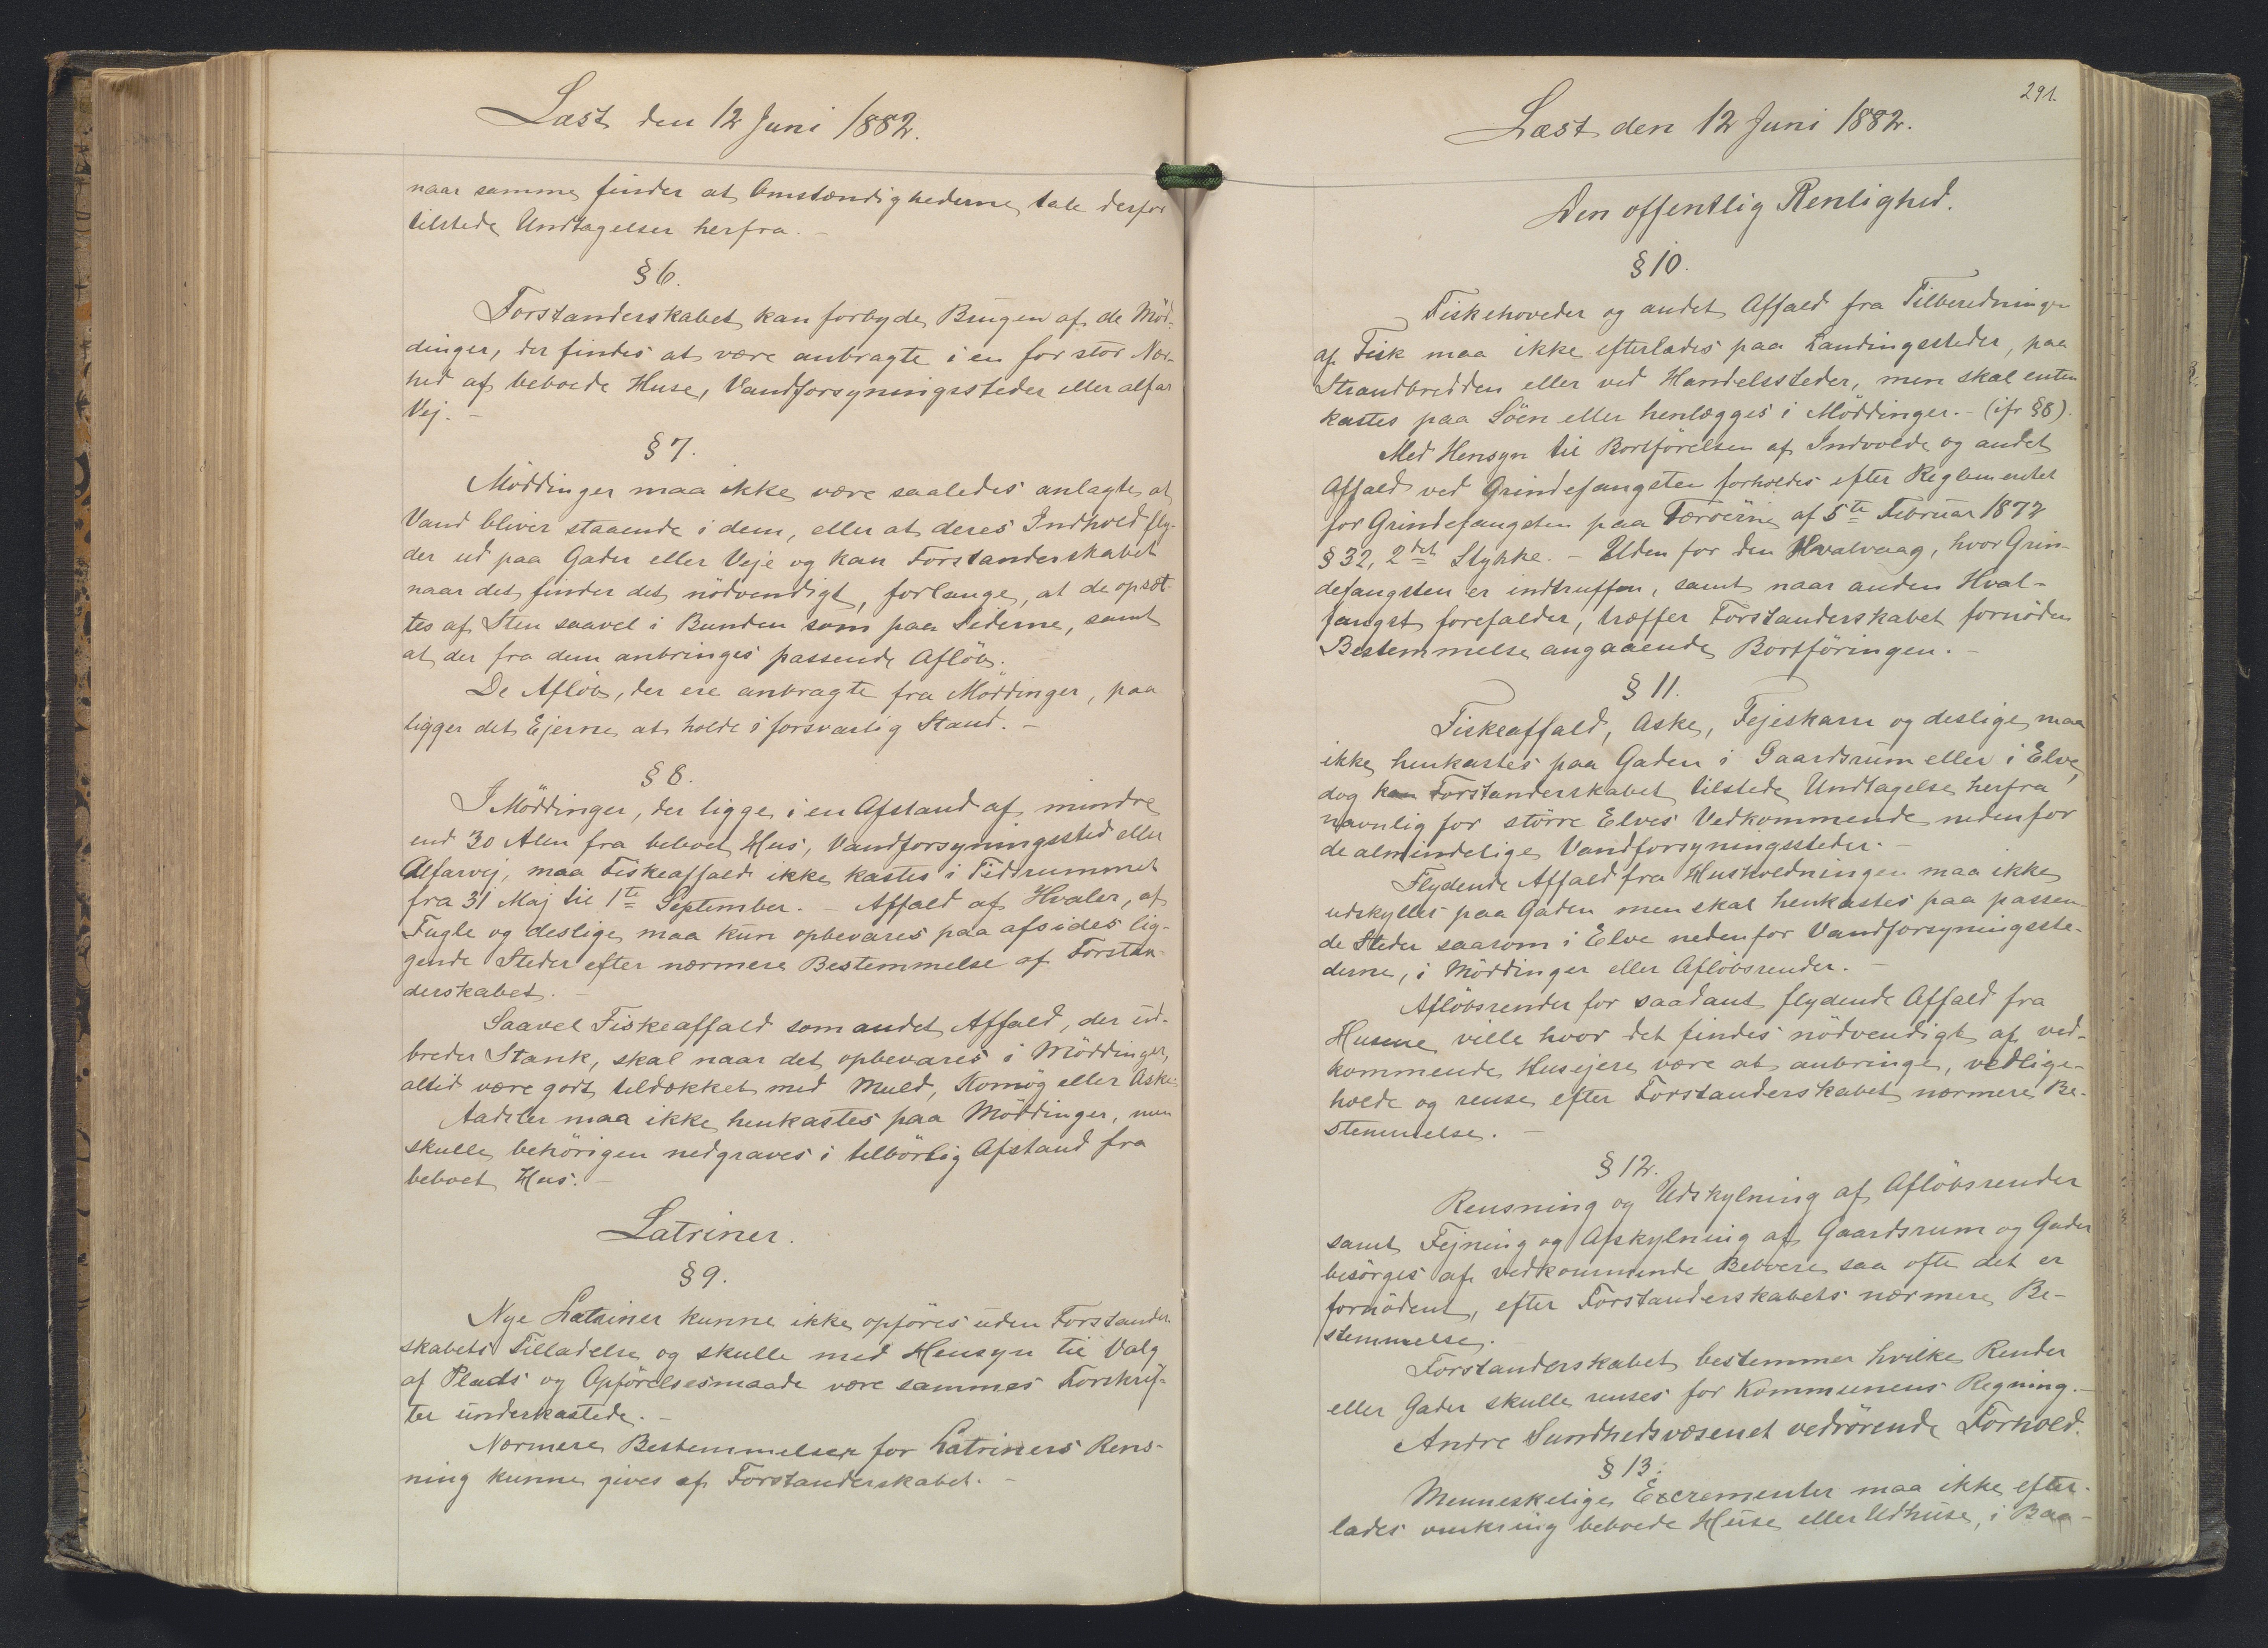 Læst den 12 Juni 1882.
naar samme finder at Omstændighederne tale derfor
tilstede Undtagelser herfra. -
§ 6.
Forstanderskabet kan forbyde Brugen af de Mød-
dinger, der findes at være anbragte i en for stor Nær-
hed af beboede Huse, Vandforsyningssteder eller alfar
Vej. -
§ 7.
Møddinger maa ikke være saaledes anlagte at
Vand bliver staaende i dem, eller at deres Indhold fly-
der ud paa Gader eller Veje og kan Forstanderskabet
naar det finder det nödvendigt, forlange, at de opsæt-
tes af Sten saavel i Bunden som paa Siderne, samt
at der fra dem anbringes passende Aflöb.
De Aflöb, der ere anbragte fra Möddinger, paa
ligger det Ejerne at holde i forsvarlig Stand. -
§ 8.
I Möddinger, der ligge i en Afstand af mindre
end 30 Alen fra beboet Hus, Vandforsyningssted eller
Alfarvej, maa Fiskeaffald ikke kastes i Tidsrummet
fra 31 Maj til 1te September. - Affald af Hvaler, af
Fugle og deslige maa kun opbevares paa afsides lig-
gende Steder efter nærmere Bestemmelse af Forstan-
derskabet. -
Saavel Fiskeaffald som andet Affald, der ud-
breder Stank, skal naar det opbevares i Möddinger,
altid være godt tildækket med Muld, Komög eller Aske
Aadsler maa ikke henkastes paa Möddinger, men
skulle behörigen nedgraves i tilbörlig Afstand fra
beboet Hus. -
Latriner.
§ 9.
Nye Latriner kunne ikke opföres uden Forstander
skabets Tilladelse og skulle med Hensyn til Valg
af Plads og Opförelsesmaade være sammes Forskrif-
ter underkastede. -
Nærmere Bestemmelser for Latriners Rens-
ning kunne gives af Forstanderskabet. -
291.
Læst den 12 Juni 1882.
Den offentlig Renlighed.
§ 10.
Fiskehoveder og andet Affald fra Tilberedningen
af Fisk maa ikke efterlades paa Landingssteder, paa
Strandbredden eller ved Handelssteder, men skal enten
kastes paa Söen eller henlægges i Möddinger. - (ifr § 8).
Med Hensyn til Bortförelsen af Indvolde og andet
Affald ved Grindefangsten forholdes efter Reglementet
for Grindefangsten paa Færöerne af 5te Februar 1872
§ 32, 2det Stykke. - Uden for den Hvalvaag, hvor Grin-
defangsten er indtruffen, samt naar anden Hval-
fangst forefalder, træffer Forstanderskabet fornöden
Bestemmelse angaaende Bortföringen. -
§ 11.
Fiskeaffald, Aske, Fejeskarn og deslige maa
ikke henkastes paa Gaden i Gaardsrum eller i Elve,
dog kan Forstanderskabet tilstede Undtagelse herfra
navnlig for större Elves Vedkommende nedenfor
de almindelige Vandforsyningssteder. -
Flydende Affald fra Husholdningen maa ikke
udskylles paa Gaden men skal henkastes paa passen
de Steder saasom i Elve nedenfor Vandforsyningsste-
derne, i Möddinger eller Aflöbsrender. -
Aflöbsrender for saadant flydende Affald fra
Husene ville hvor det findes nödvendigt af ved-
kommende Husejere være at anbringe, vedlige-
holde og rense efter Forstanderskabet nærmere Be-
stemmelse. -
§ 12.
Rensning og Udskylning af Aflöbsrender
samt Fejning og Afskylning af Gaardsrum og Gader
besörges af vedkommende Beboere saa ofte det er
fornödent, efter Forstanderskabets nærmere Be-
stemmelse.
Forstanderskabet bestemmer hvilke Render
eller Gader skulle renses for Kommunens Regning. -
Andre Sundhedsvæsenet vedrörende Forhold.
§ 13.
Menneskelige Excrementer maa ikke efter-
lades omkring beboede Huse eller Udhuse, i Baa-